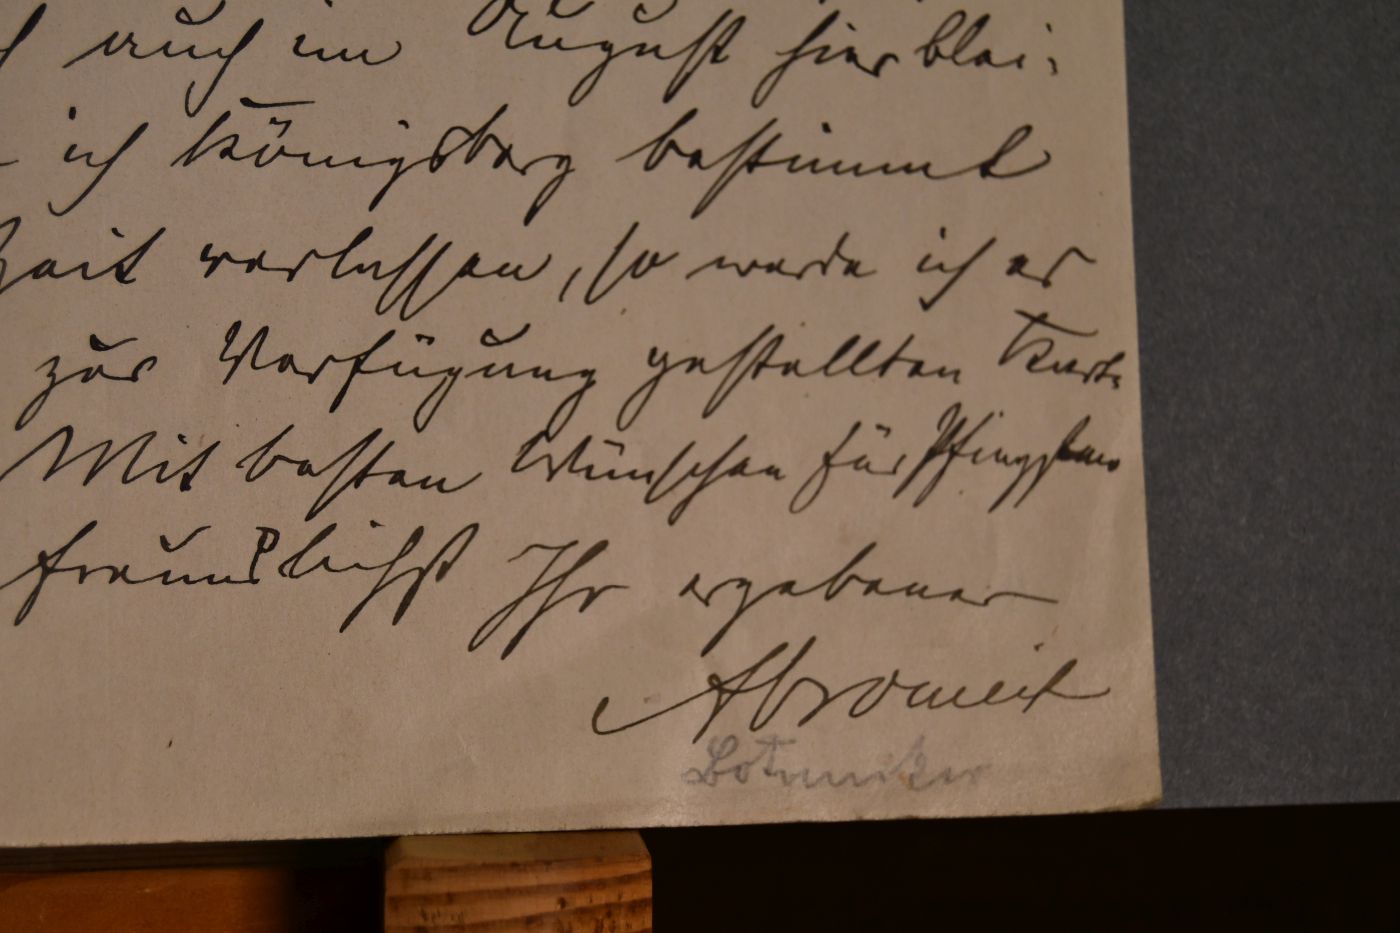 auch im August hier blei-
ich Königsberg bestimmt
Zeit verlassen, so werde ich es
zur Verfügung gestellten Karte
Mit besten Wünschen für Pfingsten
freundlichst Ihr ergebener
Abromeit
Botaniker